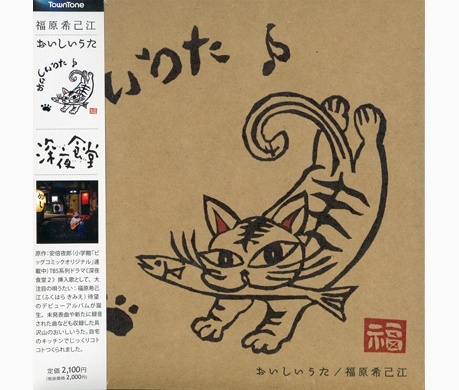 TownTone
福原希己江
おいしいうた
おいしいうた♪
深夜食堂
めし
原作:安倍夜郎(小学館「ビ
ッグコミックオリジナル」連
載中)TBS系列ドラマ《深夜
食堂2》挿入歌として、大
注目の唄うたい:福原希己
江(ふくはら きみえ)待望
のデビューアルバムが誕
生。未発表曲や新たに録音
された曲なども収録した具
沢山のおいしいうた。自宅
のキッチンでじっくりコト
コトつくられました。
定価 2,100円
(税抜価格 2,000円)
いうた♪
福
おいしいうた/福原希己江